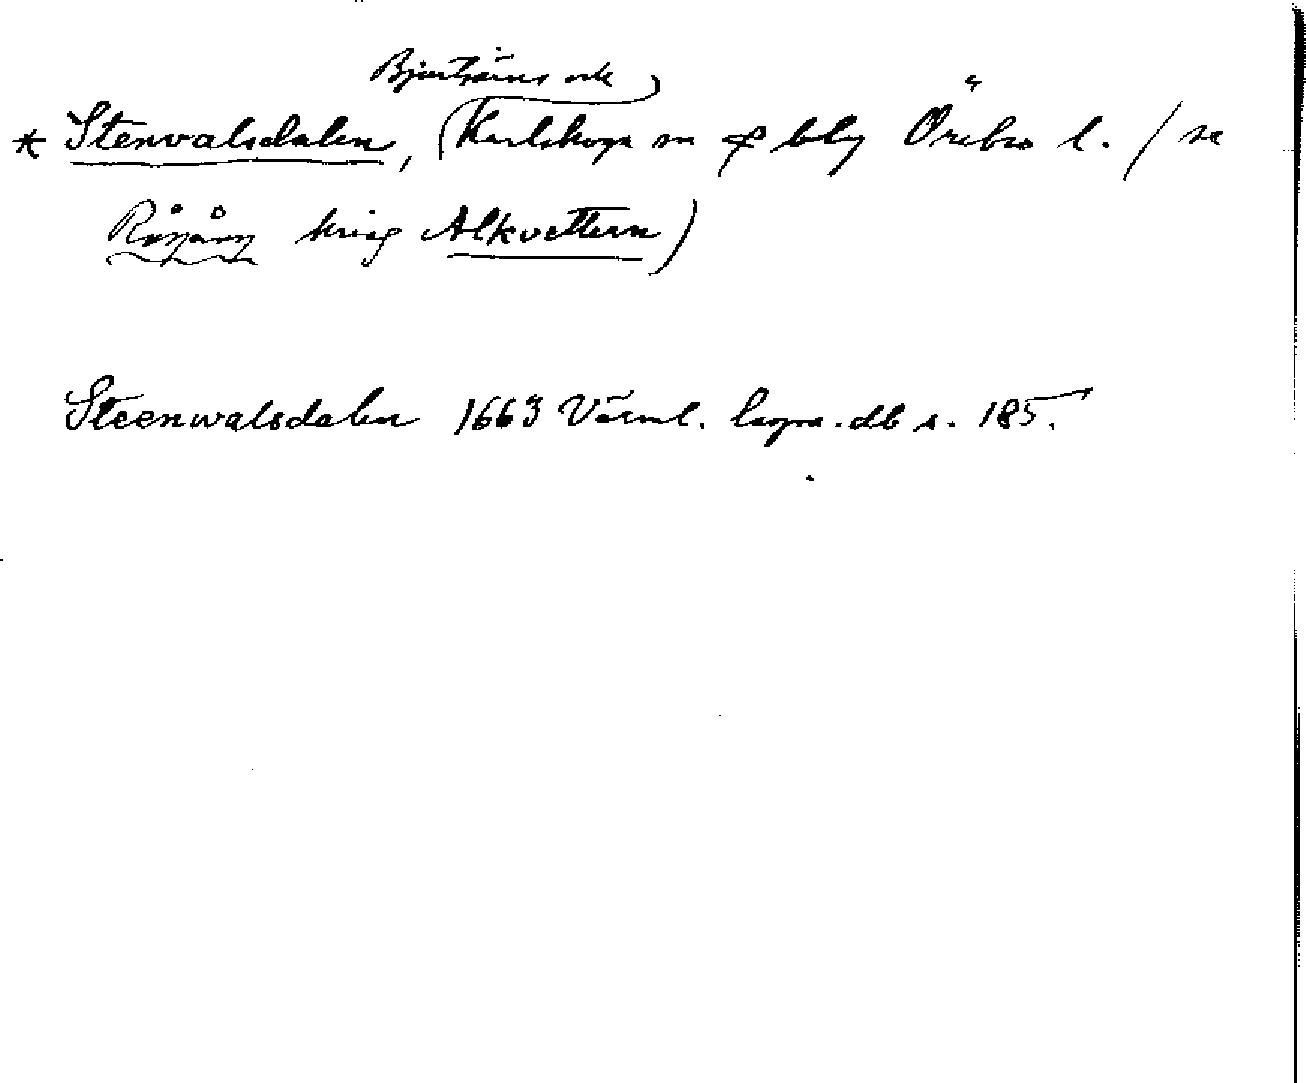 Bjurtjärns och
* Stenvalsdalen, (Karlskoga sn & blg Örebro l. / se
Rågång kring Alkvettern)
Steenwalsdalen 1663 Värml. lagm. db s. 185.